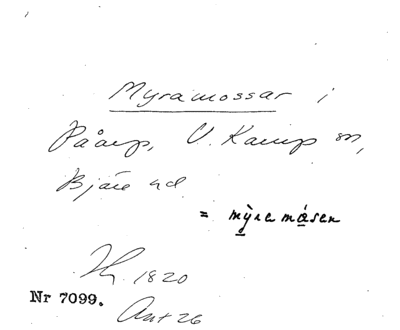 Myramossar i
Påarp, V. Karup sn,
Bjäre hd
= mỳre måsen
1820
Nr 7099.
Ant 26